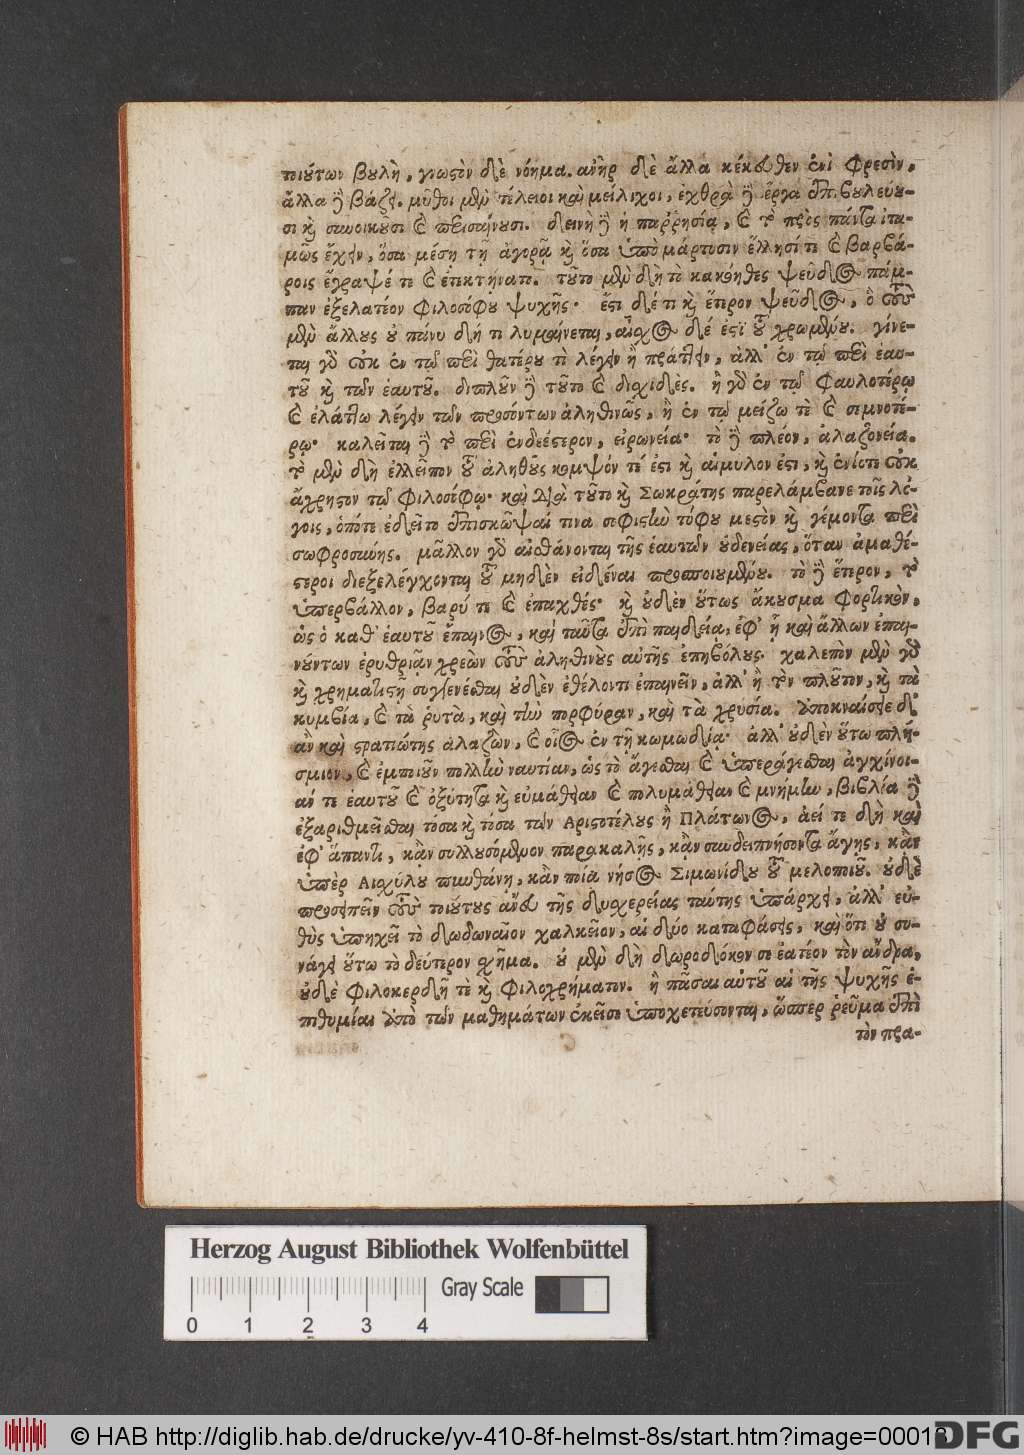 ποιούτων βουλὴ, γνωστὸν δὲ νόημα. ἀνὴρ δὲ ἄλλα κέκευθεν ἐνὶ φρεσὶν,
ἄλλα δὲ βάζει. μῦθοι μὲν τέλειοι καὶ μείλιχοι, ἐχθρὰ δὲ ἔργα ἐπιβουλεύου-
σι καὶ συνοικοῦσι καὶ περισαίνουσι. δεινὴ δὲ ἡ παῤῥησία, καὶ τὸ πρὸς πάντα ἰτα-
μῶς ἔχειν, ὅσα μέση τῇ ἀγορᾷ καὶ ὅσα ὑπὸ μάρτυσιν ἕλλησί τε καὶ βαρβά-
ροις ἔγραψέ τε καὶ ἐπεκτήνατο. τοῦτο μὲν δὴ τὸ κακόηθες ψεῦδος πάμ-
παν ἐξελατέον φιλοσόφου ψυχῆς· ἔστι δέ τι καὶ ἕτερον ψεῦδος, ὃ τοὺς
μὲν ἄλλους οὐ πάνυ δή τι λυμαίνεται, αἶσχος δέ ἐστι τοῦ χρωμένου. γίνε-
ται γὰρ οὐκ ἐν τῷ περὶ θατέρου τὶ λέγειν ἢ πράττειν, ἀλλ' ἐν τῷ περὶ ἑαυ-
τοῦ καὶ τῶν ἑαυτοῦ. διπλοῦν δὲ τοῦτο καὶ διχιδές. ἢ γὰρ ἐν τῷ φαυλοτέρῳ
καὶ ἐλάττω λέγειν τῶν προσόντων ἀληθινῶς, ἢ ἐν τῷ μείζω τὲ καὶ σεμνοτέ-
ρῳ· καλεῖται δὲ τὸ περὶ ἐνδεέστερον, εἰρωνεία· τὸ δὲ πλέον, ἀλαζονεία.
τὸ μὲν δὴ ἐλλεῖπον τοῦ ἀληθοῦς κομψόν τέ ἐστι καὶ αἱμύλον ἐστι, καὶ ἐνίοτε οὐκ
ἄχρηστον τῷ φιλοσόφῳ· καὶ διὰ τοῦτο καὶ Σωκράτης παρελάμβανε τοῖς λό-
γοις, ὁπότε ἐδεῖτο ἐπισκῶψαί τινα σοφιστὴν τύφου μεστὸν καὶ γέμοντα περὶ
σωφροσύνης. μᾶλλον γὰρ αἰσθάνονται τῆς ἑαυτῶν οὐδενείας, ὅταν ἀμαθέ-
στεροι διεξελέγχονται τοῦ μηδὲν εἰδέναι προσποιουμένου. τὸ δὲ ἕτερον, τὸ
ὑπερβάλλον, βαρύ τε καὶ ἐπαχθές· καὶ οὐδὲν οὕτως ἄκουσμα φορτικὸν,
ὡς ὁ καθ' ἑαυτοῦ ἔπαινος, καὶ ταῦτα ἐπὶ παιδείᾳ, ἐφ' ᾗ καὶ ἄλλων ἐπαι-
νούντων ἐρυθριᾶν χρεὼν τοὺς ἀληθινοὺς αὐτῆς ἐπηβόλους. χαλεπὸν μὲν γὰρ
καὶ χρηματιστῇ συγγενέσθαι οὐδὲν ἐθέλοντι ἐπαινεῖν, ἀλλ' ἢ τὸν πλοῦτον, καὶ τὰ
κυμβία, καὶ τὰ ῥυτὰ, καὶ τὴν πορφύραν, καὶ τὰ χρυσία. ἀποκναίσειε δ'
ἂν καὶ στρατιώτης ἀλαζὼν, καὶ οἷος ἐν τῇ κωμωδίᾳ· ἀλλ' οὐδὲν οὕτω πλή-
σμιον, καὶ ἐμποιοῦν πολλὴν ναυτίαν, ὡς τὸ ἄγεσθαι καὶ ὑπεράγεσθαι ἀγχίνοι-
αν τε ἑαυτοῦ καὶ ὀξύτητα καὶ εὐμάθειαν καὶ πολυμάθειαν καὶ μνήμην, βιβλία δὲ
ἐξαριθμεῖσθαι τόσα καὶ τόσα τῶν Αριστοτέλους ἢ Πλάτωνος, ἀεί τε δὴ καὶ
ἐφ' ἅπαντι, κἂν συλλουσόμενον παρακαλῇς, κἂν συνδειπνήσοντα ἄγῃς, κἂν
ὑπὲρ Αισχύλου πυνθάνῃ, κἂν ποία νῆσος Σιμωνίδου τοῦ μελοποιοῦ. οὐδὲ
προσειπεῖν τοὺς τοιούτους ἄνευ τῆς δυσχερείας ταύτης ὑπάρχει, ἀλλ' εὐ-
θὺς ὑπηχεῖ τὸ δωδωναῖον χαλκεῖον, αἱ δύο καταφάσεις, καὶ ὅτι οὐ συ-
νάγει οὕτω τὸ δεύτερον σχῆμα. οὐ μὲν δὴ δωροδόκον σε ἐατέον τὸν ἄνδρα,
οὐδὲ φιλοκερδῆ τε καὶ φιλοχρήματον. ἢ πᾶσαι αὐτοῦ αἱ τῆς ψυχῆς ἐ-
πιθυμίαι ἀπὸ τῶν μαθημάτων ἐκεῖσε ὑποχετεύσονται, ὥσπερ ῥεῦμα ἐπὶ
τὸν πρα-
Herzog August Bibliothek Wolfenbüttel
Gray Scale
0 1 2 3 4
© HAB http://diglib.hab.de/drucke/yv-410-8f-helmst-8s/start.htm?image=00013
DFG